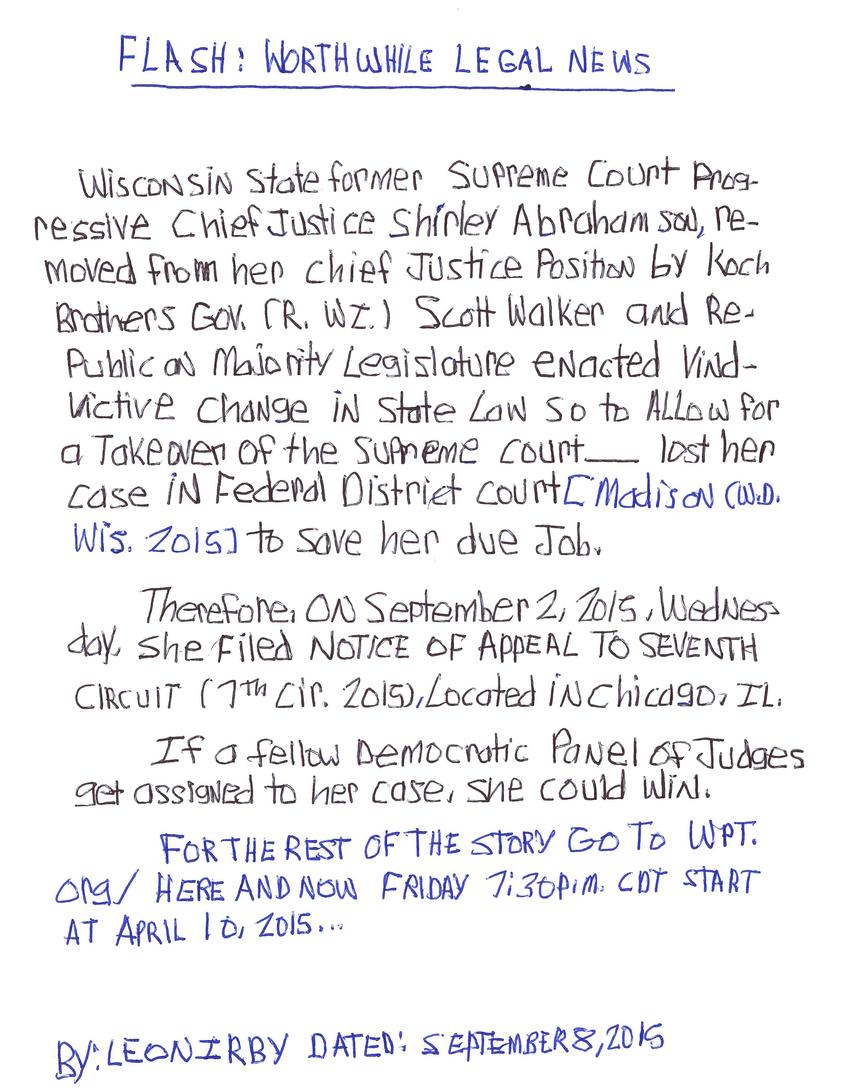 FLASH: WORTHWHILE LEGAL NEWS
Wisconsin State former Supreme Court Prog-
ressive Chief Justice Shirley Abrahamson, re-
moved from her chief Justice Position by Koch
Brothers Gov. (R. WI.) Scott Walker and Re-
Publican Majority Legislature enacted Vind-
victive change in State Law so to Allow for
a Takeover of the Supreme court___ lost her
case in Federal District court [Madison (W.D.
Wis. 2015] to save her due Job.
Therefore, ON September 2, 2015, Wednes-
day, she Filed NOTICE OF APPEAL TO SEVENTH
CIRCUIT (7TH Cir. 2015), Located in Chicago, IL.
If a fellow Democratic Panel of Judges
get assigned to her case, she could Win.
FOR THE REST OF THE STORY GO TO WPT.
org/ HERE AND NOW FRIDAY 7:30 p.m. CDT START
AT APRIL 10, 2015...
By: LEON IRBY DATED: SEPTEMBER 8, 2015